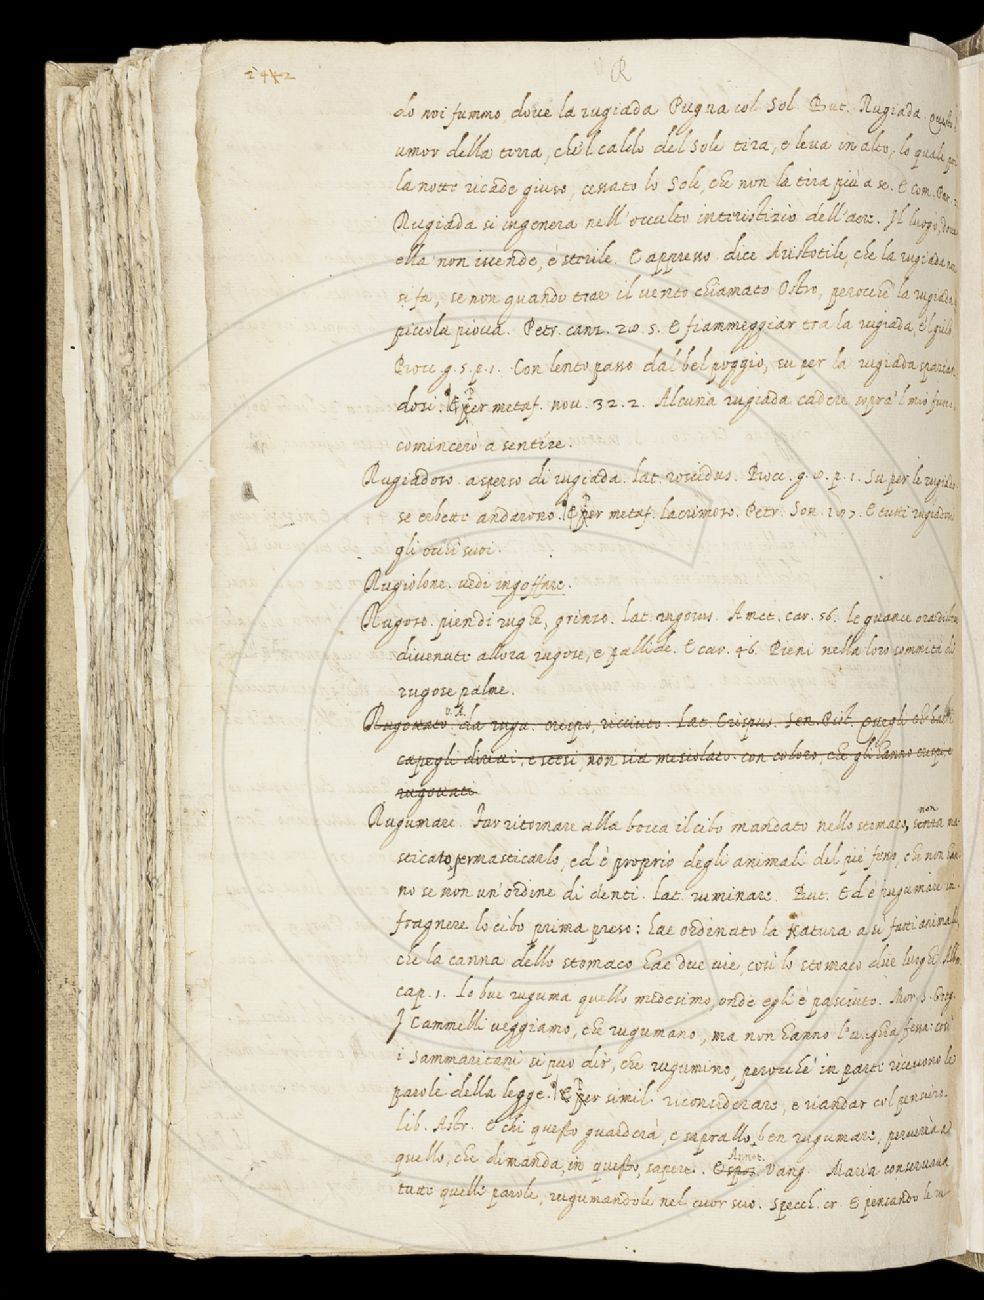 2442
R
do noi fummo dove la rugiada Pugna col Sol. But. Rugiada
umor della terra, che'l caldo del Sole tira, e leva in alto, lo quale poi
la notte ricade giuso, cessato lo Sole, che non la tira più a se. E Com. Par. 2.
Rugiada si ingenera nell'occulto interstizio dell'aere. Il luogo, dove
ella non iscende, è sterile. E appresso dice Aristotile, che la rugiada non
si fa, se non quando trae il vento chiamato Ostro, perocchè la rugiada
piccola piova. Petr. canz. 5. E fiammeggiar tra la rugiada, e'l gielo
Bocc. g. 5. p. 1. Con lento passo dal bel poggio, su per la rugiada
dosi. E per metaf. nov. 32. 2. Alcuna rugiada cadere sopra'l mio fuoco
comincerò a sentire.
Rugiadoso. asperso di rugiada. Lat. roscidus. Bocc. g. 8. p. 1. Su per le rugiado
se erbette andarono. E per metaf. lacrimoso. Petr. Son. E tutti rugiadosi
gli occhi suoi.
Rugiolone. vedi ingoffare.
Rugoso. pien di rughe, grinzo. Lat. rugosus. Amet. car. 56. Le guance
divenute allora rugose, e pallide. E car. 46. Pieni nella loro sommità di
rugose palme.
Rugottato. V.A. da ruga. crespo, ricciuto. Lat. Crispus. Sen. Pist. Quegli ch'ha
capegli distesi, non sia mescolato con coloro, che gli hanno crespi, e
Rugumare. Far ritornare alla bocca il cibo mandato nello stomaco, non ma
sticato, per masticarlo, ed è proprio degli animali del piè fesso, che non han
no se non un'ordine di denti. Lat. ruminare. But. Ed è rugumare in
fragnere lo cibo prima preso: hae ordinato la Natura a sì fatti animali,
che la canna dello stomaco hae due vie, così lo stomaco due luoghi. Alb.
cap. 1. Lo bue ruguma quello medesimo, onde egli è pasciuto. Mor. S. Greg.
I Cammelli veggiamo, che rugumano, ma non hanno l'unghia fessa: così
i Sammaritani si può dir, che rugumino, perocchè in parte ricevono le
parole della legge. E per simil. riconsiderare, e riandar col pensiero.
lib. Astr. E chi questo guarderà, e saprallo ben rugumare, perverrà a
quello, che dimanda, in questo, sapere. Annot. Vang. Maria conservava
tutte quelle parole, rugumandole nel cuor suo. Specch. cr. E pensando le ru